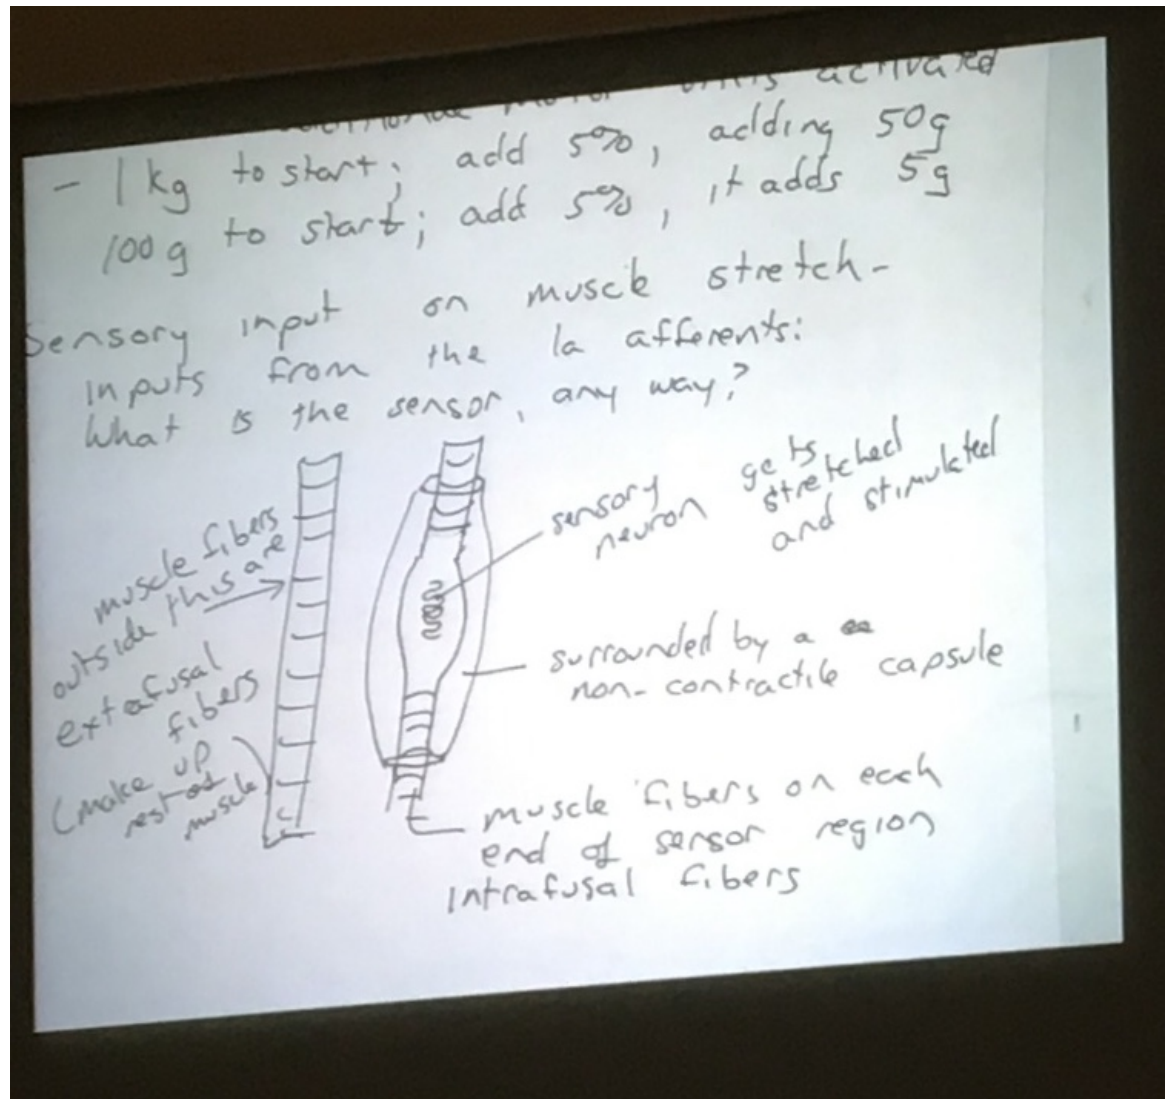 motor units activated
- 1 kg to start; add 5%, adding 50g
100 g to start; add 5%, it adds 5g
Sensory input on muscle stretch-
inputs from the Ia afferents:
What is the sensor, any way?
muscle fibers
outside this are
extrafusal
fibers
(make up
rest of
muscle)
sensory
neuron
gets
stretched
and stimulated
surrounded by a
non-contractile capsule
muscle fibers on each
end of sensor region
intrafusal fibers